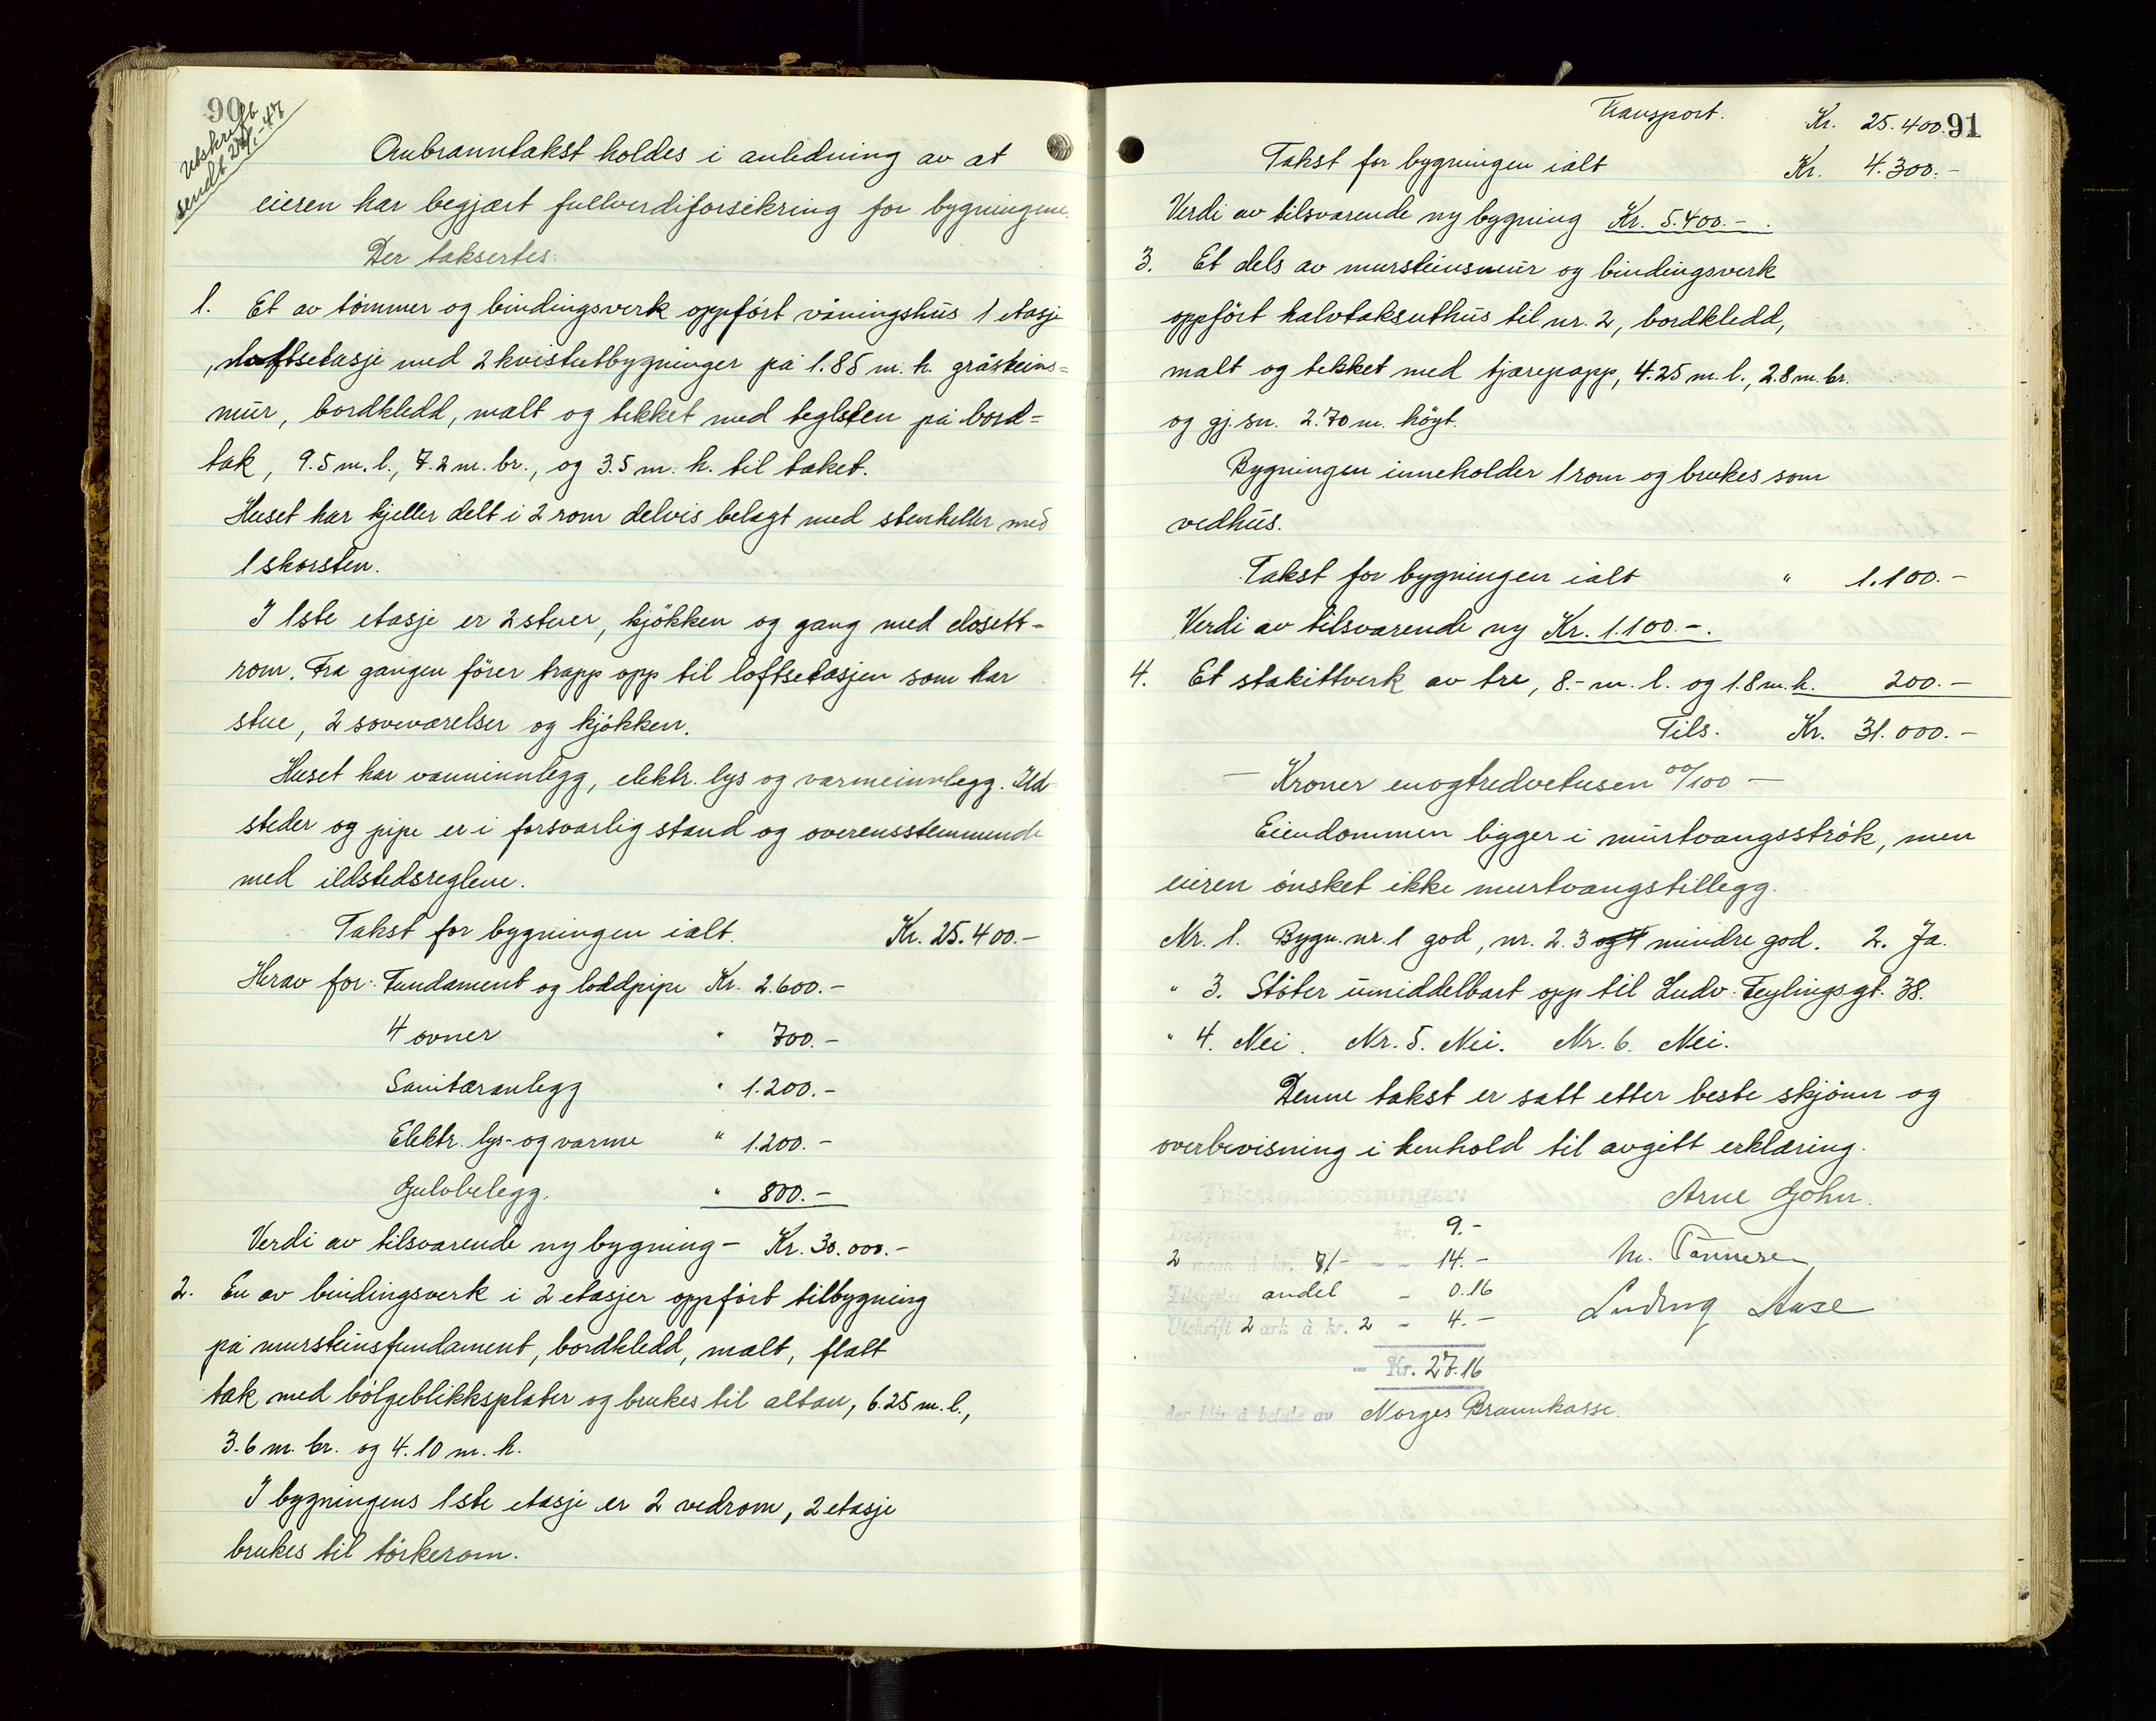 90
Utskrift
sendt 22/1-47
Ombranntakst holdes i anledning av at
eieren har begjært fullverdiforsikring for bygningene.
Der taksertes:
1. Et av tømmer og bindingsverk oppført våningshus 1 etasje
, loftsetasje med 2 kvistutbygninger på 1.85 m. h. gråsteins=
mur, bordkledd, malt og tekket med teglsten på bord=
tak, 9.5 m. l., 7.2 m. br., og 3.5 m. h. til taket.
Huset har kjeller delt i 2 rom delvis belagt med stenheller med
1 skorsten.
I 1ste etasje er 2 stuer, kjøkken og gang med closett-
rom. Fra gangen fører trapp opp til loftsetasjen som har
stue, 2 soveværelser og kjøkken.
Huset har vanninnlegg, elektr. lys og varmeinnlegg. Ild-
steder og pipe er i forsvarlig stand og overensstemmende
med ildstedsreglene.
Takst for bygningen ialt. Kr. 25.400.-
Herav for: Fundament og loddpipe Kr. 2.600.-
4 ovner " 700.-
Sanitæranlegg " 1.200.-
Elektr. lys- og varme " 1.200.-
Gulvbelegg. " 800.-
Verdi av tilsvarende ny bygning - Kr. 30.000.-
2. En av bindingsverk i 2 etasjer oppført tilbygning
på mursteinsfundament, bordkledd, malt, flatt
tak med bølgeblikksplater og brukes til altan, 6.25 m. l.,
3.6 m. br. og 4.10 m. h.
I bygningens 1ste etasje er 2 vedrom, 2 etasje
brukes til tørkerom.
91
Transport. Kr. 25.400.
Takst for bygningen ialt Kr. 4.300.-
Verdi av tilsvarende ny bygning Kr. 5.400.-.
3. Et dels av mursteinsmur og bindingsverk
oppført halvtaksuthus til nr. 2, bordkledd,
malt og tekket med tjærepapp, 4.25 m. l., 2.8 m. br.
og gj. sn. 2.70 m. høgt.
Bygningen inneholder 1 rom og brukes som
vedhus.
Takst for bygningen ialt " 1.100.-
Verdi av tilsvarende ny Kr. 1.100.-.
4. Et stakittverk av tre, 8.- m. l. og 1.8 m. h. 200.-
Tils. Kr. 31.000.-
- Kroner enogtredvetusen 00/100 -
Eiendommen ligger i murtvangsstrøk, men
eieren ønsket ikke murtvangstillegg.
Nr. 1. Bygn. nr. 1 god, nr. 2. 3 og 4 mindre god. 2. Ja.
" 3. Støter umiddelbart opp til Ludv. Feylingsgt. 38.
" 4. Nei. Nr. 5. Nei. Nr. 6. Nei.
Denne takst er satt etter beste skjønn og
overbevisning i henhold til avgitt erklæring.
Takstomkostninger:
Arne Gohn.
kr. 9.-
2 menn à kr. 7/- - - 14.-
andel - 0.16
Ludvig Aase
Utskrift 2 ark à kr. 2 - 4.-
- Kr. 27.16
der blir å betale av Norges Brannkasse.